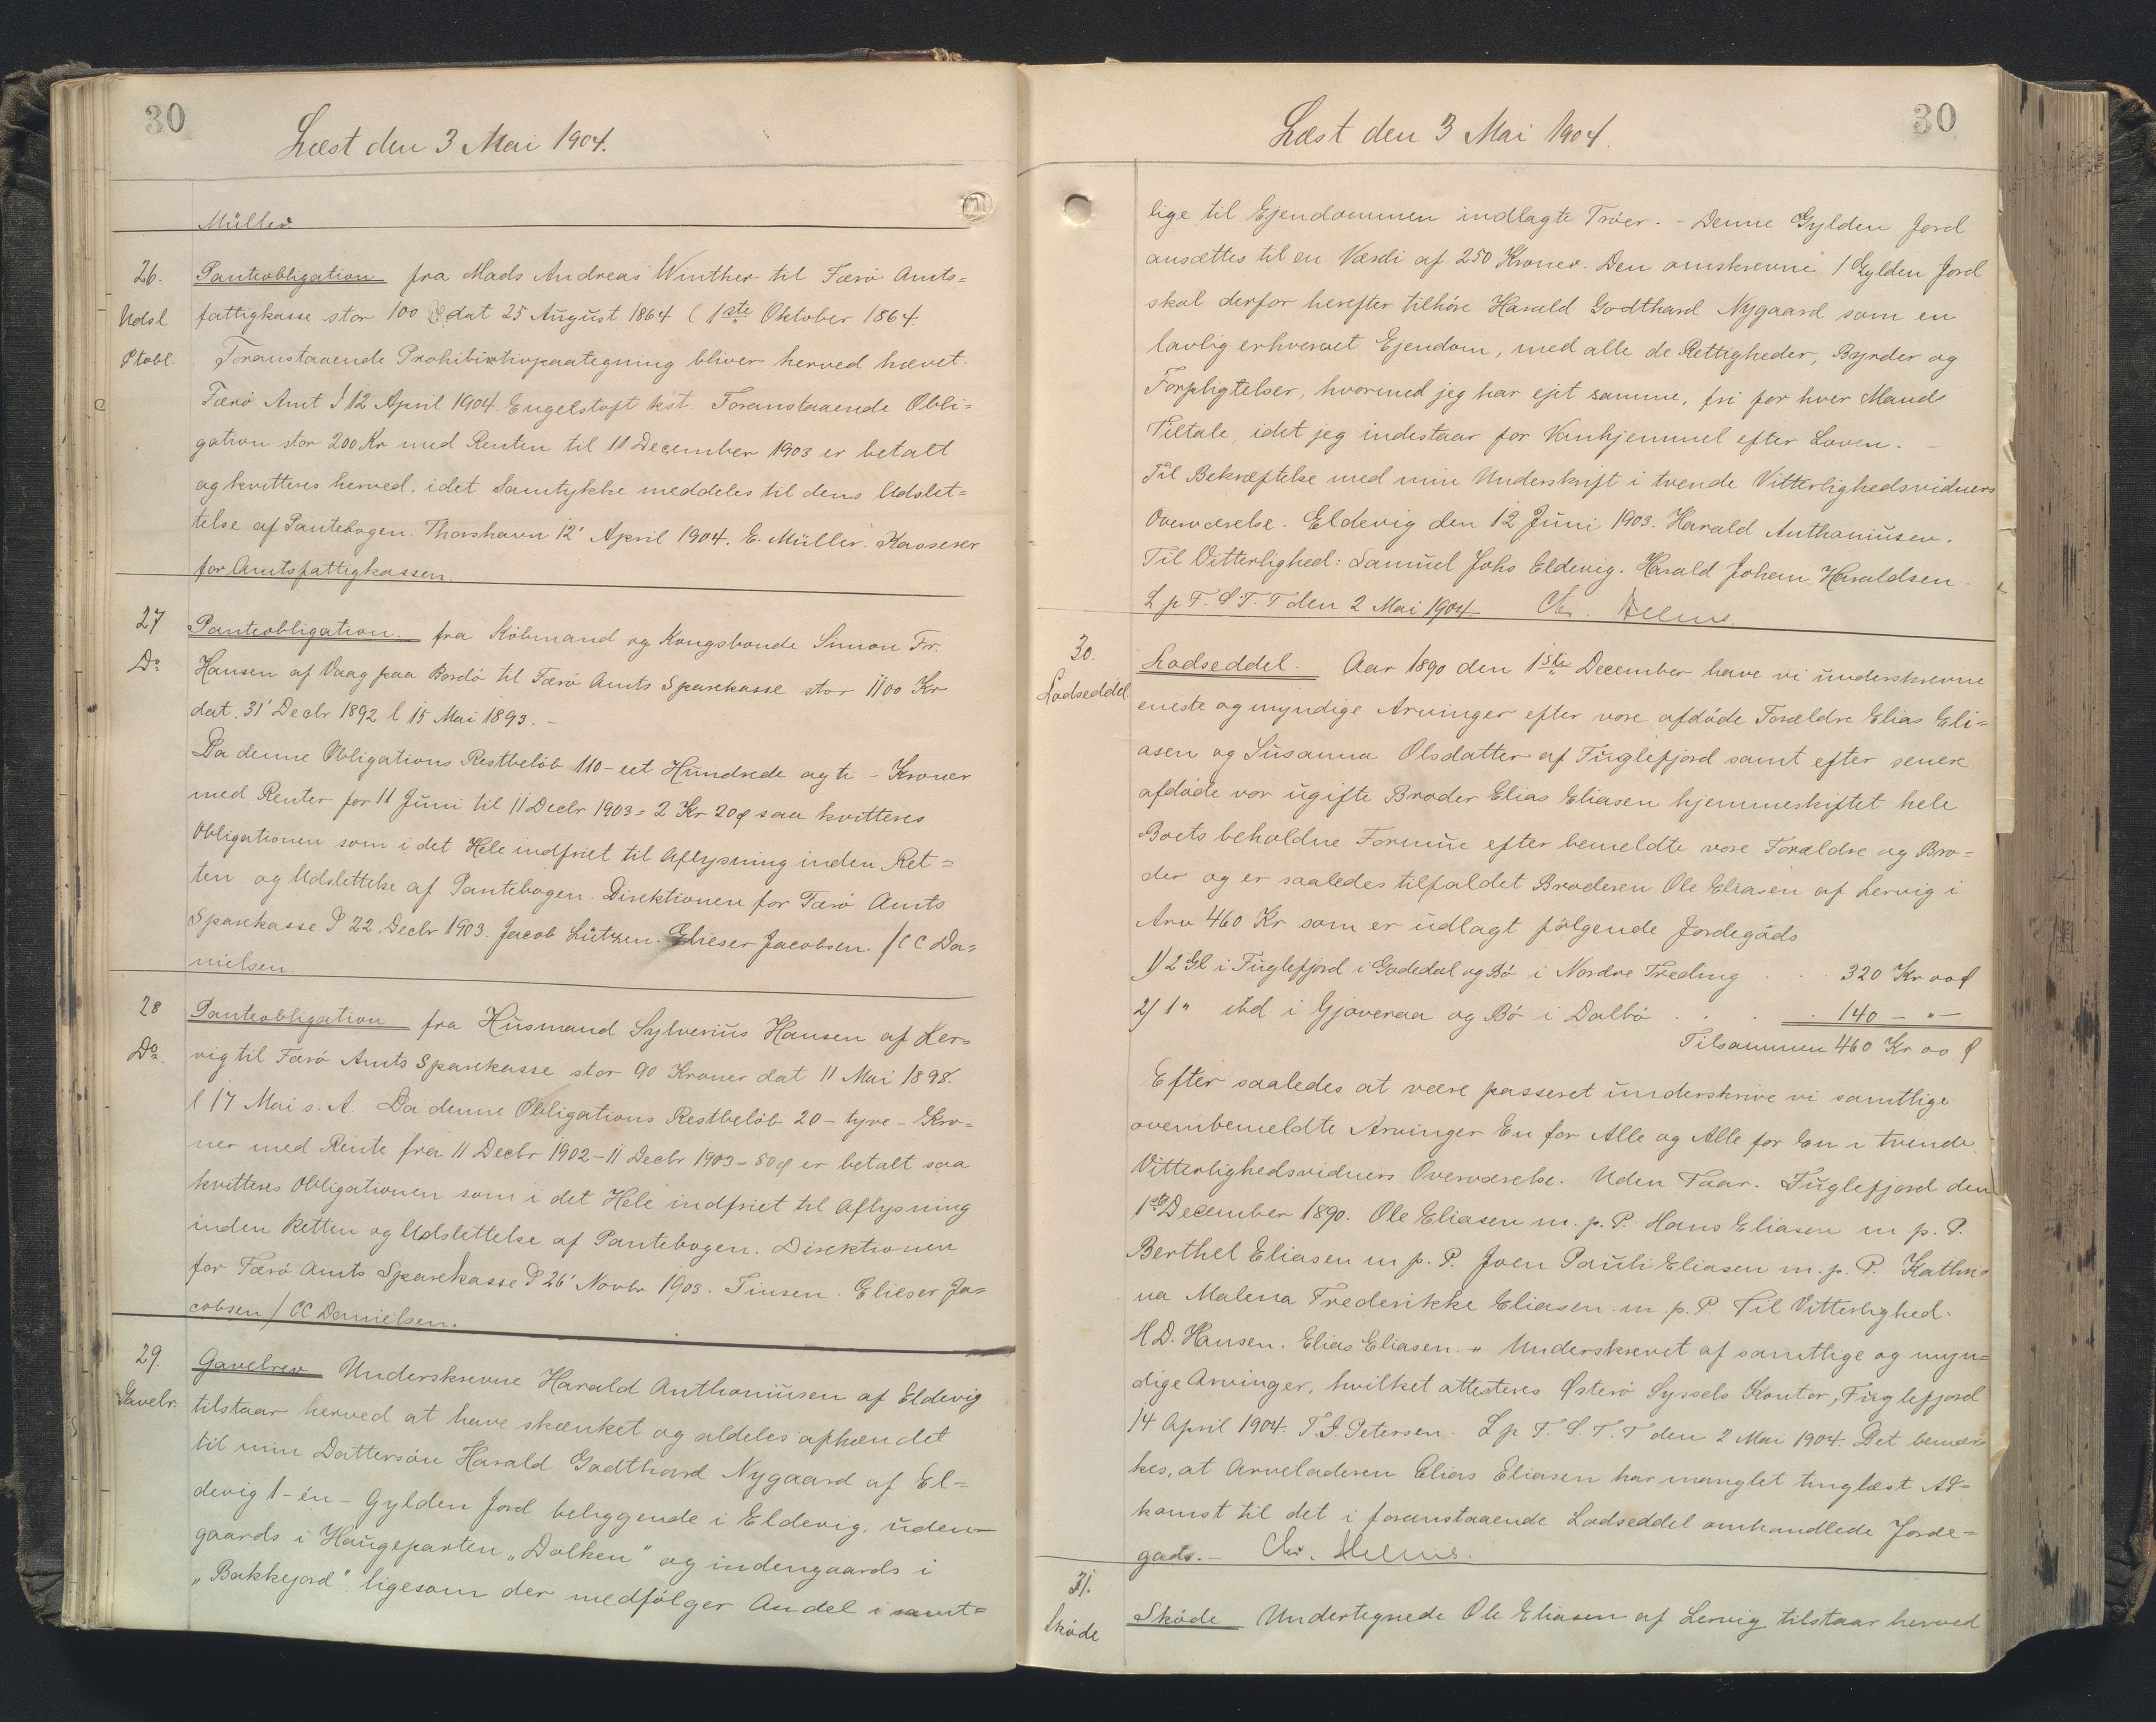 30
Læst den 3 Mai 1904.
Müller
26.
Udsl
Ptobl.
Panteobligation fra Mads Andreas Winther til Færö Amts=
fattigkasse stor 100 dat 25 August 1864 l 1ste Oktober 1864.
Foranstaaende Prohibitivpaategning bliver herved hævet.
Færö Amt d 12 April 1904. Engelstoft kst. Foranstaaende Obli=
gation stor 200 Kr med Renten til 11 December 1903 er betalt
og kvitteres herved, idet Samtykke meddeles til dens Udslet=
telse af Pantebogen. Thorshavn 12' April 1904. E. Müller. Kasserer
for Amtsfattigkassen.
27
Do
Panteobligation fra Köbmand og Kongsbonde Simon Fr.
Hansen af Vaag paa Bordö til Færö Amts Sparekasse stor 1100 Kr
dat. 31' Decbr 1892 l 15 Mai 1893. -
Da denne Obligations Restbelöb 110 - eet Hundrede og ti - Kroner
med Renter for 11 Juni til 11 Decbr 1903 = 2 Kr 20 ø saa kvitteres
Obligationen som i det Hele indfriet til Aflysning inden Ret=
ten og Udslettelse af Pantebogen. Direktionen for Færö Amts
Sparekasse P 22 Decbr 1903. Jacob Lützen. Elieser Jacobsen. / CC Da=
nielsen.
28
Do
Panteobligation fra Husmand Sylverius Hansen af Ler=
vig til Færö Amts Sparekasse stor 90 Kroner dat 11 Mai 1898.
l 17 Mai s. A. Da denne Obligations Restbelöb 20 - tyve - Kro=
ner med Rente fra 11 Decbr 1902 - 11 Decbr 1903 = 80 ø er betalt saa
kvitteres Obligationen som i det Hele indfriet til Aflysning
inden Retten og Udslettelse af Pantebogen. Direktionen
for Færö Amts Sparekasse P 26' Novbr 1903. Finsen. Elieser Ja=
cobsen / CC Danielsen.
29.
Gavebr.
Gavebrev Underskrevne Harald Anthoniusen af Eldevig
tilstaar herved at have skænket og aldeles afhændet
til min Dattersön Harald Godthard Nygaard af El=
devig 1 - én - Gylden Jord beliggende i Eldevig, uden=
gaards i Haugeparten „Dalken" og indengaards i
„Bakkejord" ligesom der medfölger Andel i samt=
30
Læst den 3 Mai 1904.
lige til Ejendommen indlagte Tröer. - Denne Gylden Jord
ansættes til en Værdi af 250 Kroner. Den omskrevne 1 Gylden Jord
skal derfor herefter tilhöre Harald Godthard Nygaard som en
lovlig erhvervet Ejendom, med alle de Rettigheder, Byrder og
Forpligtelser, hvormed jeg har ejet samme, fri for hver Mands
Tiltale, idet jeg indestaar for Vanhjemmel efter Loven. -
Til Bekræftelse med min Underskrift i tvende Vitterlighedsvidners
Overværelse. Eldevig den 12 Juni 1903. Harald Anthoniusen.
Til Vitterlighed: Samuel Johs Eldevig. Harald Johan Haraldsen.
L p F. S. T. T den 2 Mai 1904. Chr.
30.
Lodseddel
Lodseddel. Aar 1890 den 1ste December have vi underskrevne
eneste og myndige Arvinger efter vore afdöde Forældre Elias Eli=
asen og Susanna Olsdatter af Fuglefjord samt efter senere
afdöde vor ugifte Broder Elias Eliasen hjemmeskiftet hele
Boets beholdne Formue efter bemeldte vore Forældre og Bro=
der og er saaledes tilfaldet Broderen Ole Eliasen af Lervig i
Arv 460 Kr som er udlagt fölgende Jordegóds
1/ 2 Gl i Fuglefjord i Gadedal og Bö i Nordre Treding . . 320 Kr 00 ø
2/ 1 " ibd i Gjoveraa og Bö i Dalbö . . . . 140 - " -
Tilsammen 460 Kr 00 ø
Efter saaledes at være passeret underskrive vi samtlige
ovenbemeldte Arvinger En for Alle og Alle for En i tvende
Vitterlighedsvidners Overværelse. Uden Faar. Fuglefjord den
1ste December 1890. Ole Eliasen m. p. P. Hans Eliasen m p. P.
Berthel Eliasen m p. P. Joen Pauli Eliasen m. p. P. Kathri=
na Malena Frederikke Eliasen m. p. P. Til Vitterlighed.
H D. Hansen. Elias Eliasen. " Underskrevet af samtlige og myn=
dige Arvinger, hvilket attesteres Österö Syssels Kontor, Fuglefjord
14 April 1904. T. J. Petersen. L p F. S. T. T den 2 Mai 1904. Det bemær=
kes, at Arveladeren Elias Eliasen har manglet tinglæst Ad=
komst til det i foranstaaende Lodseddel omhandlede Jorde=
gods. - Chr.
31.
Sköde
Sköde Undertegnede Ole Eliasen af Lervig tilstaar herved